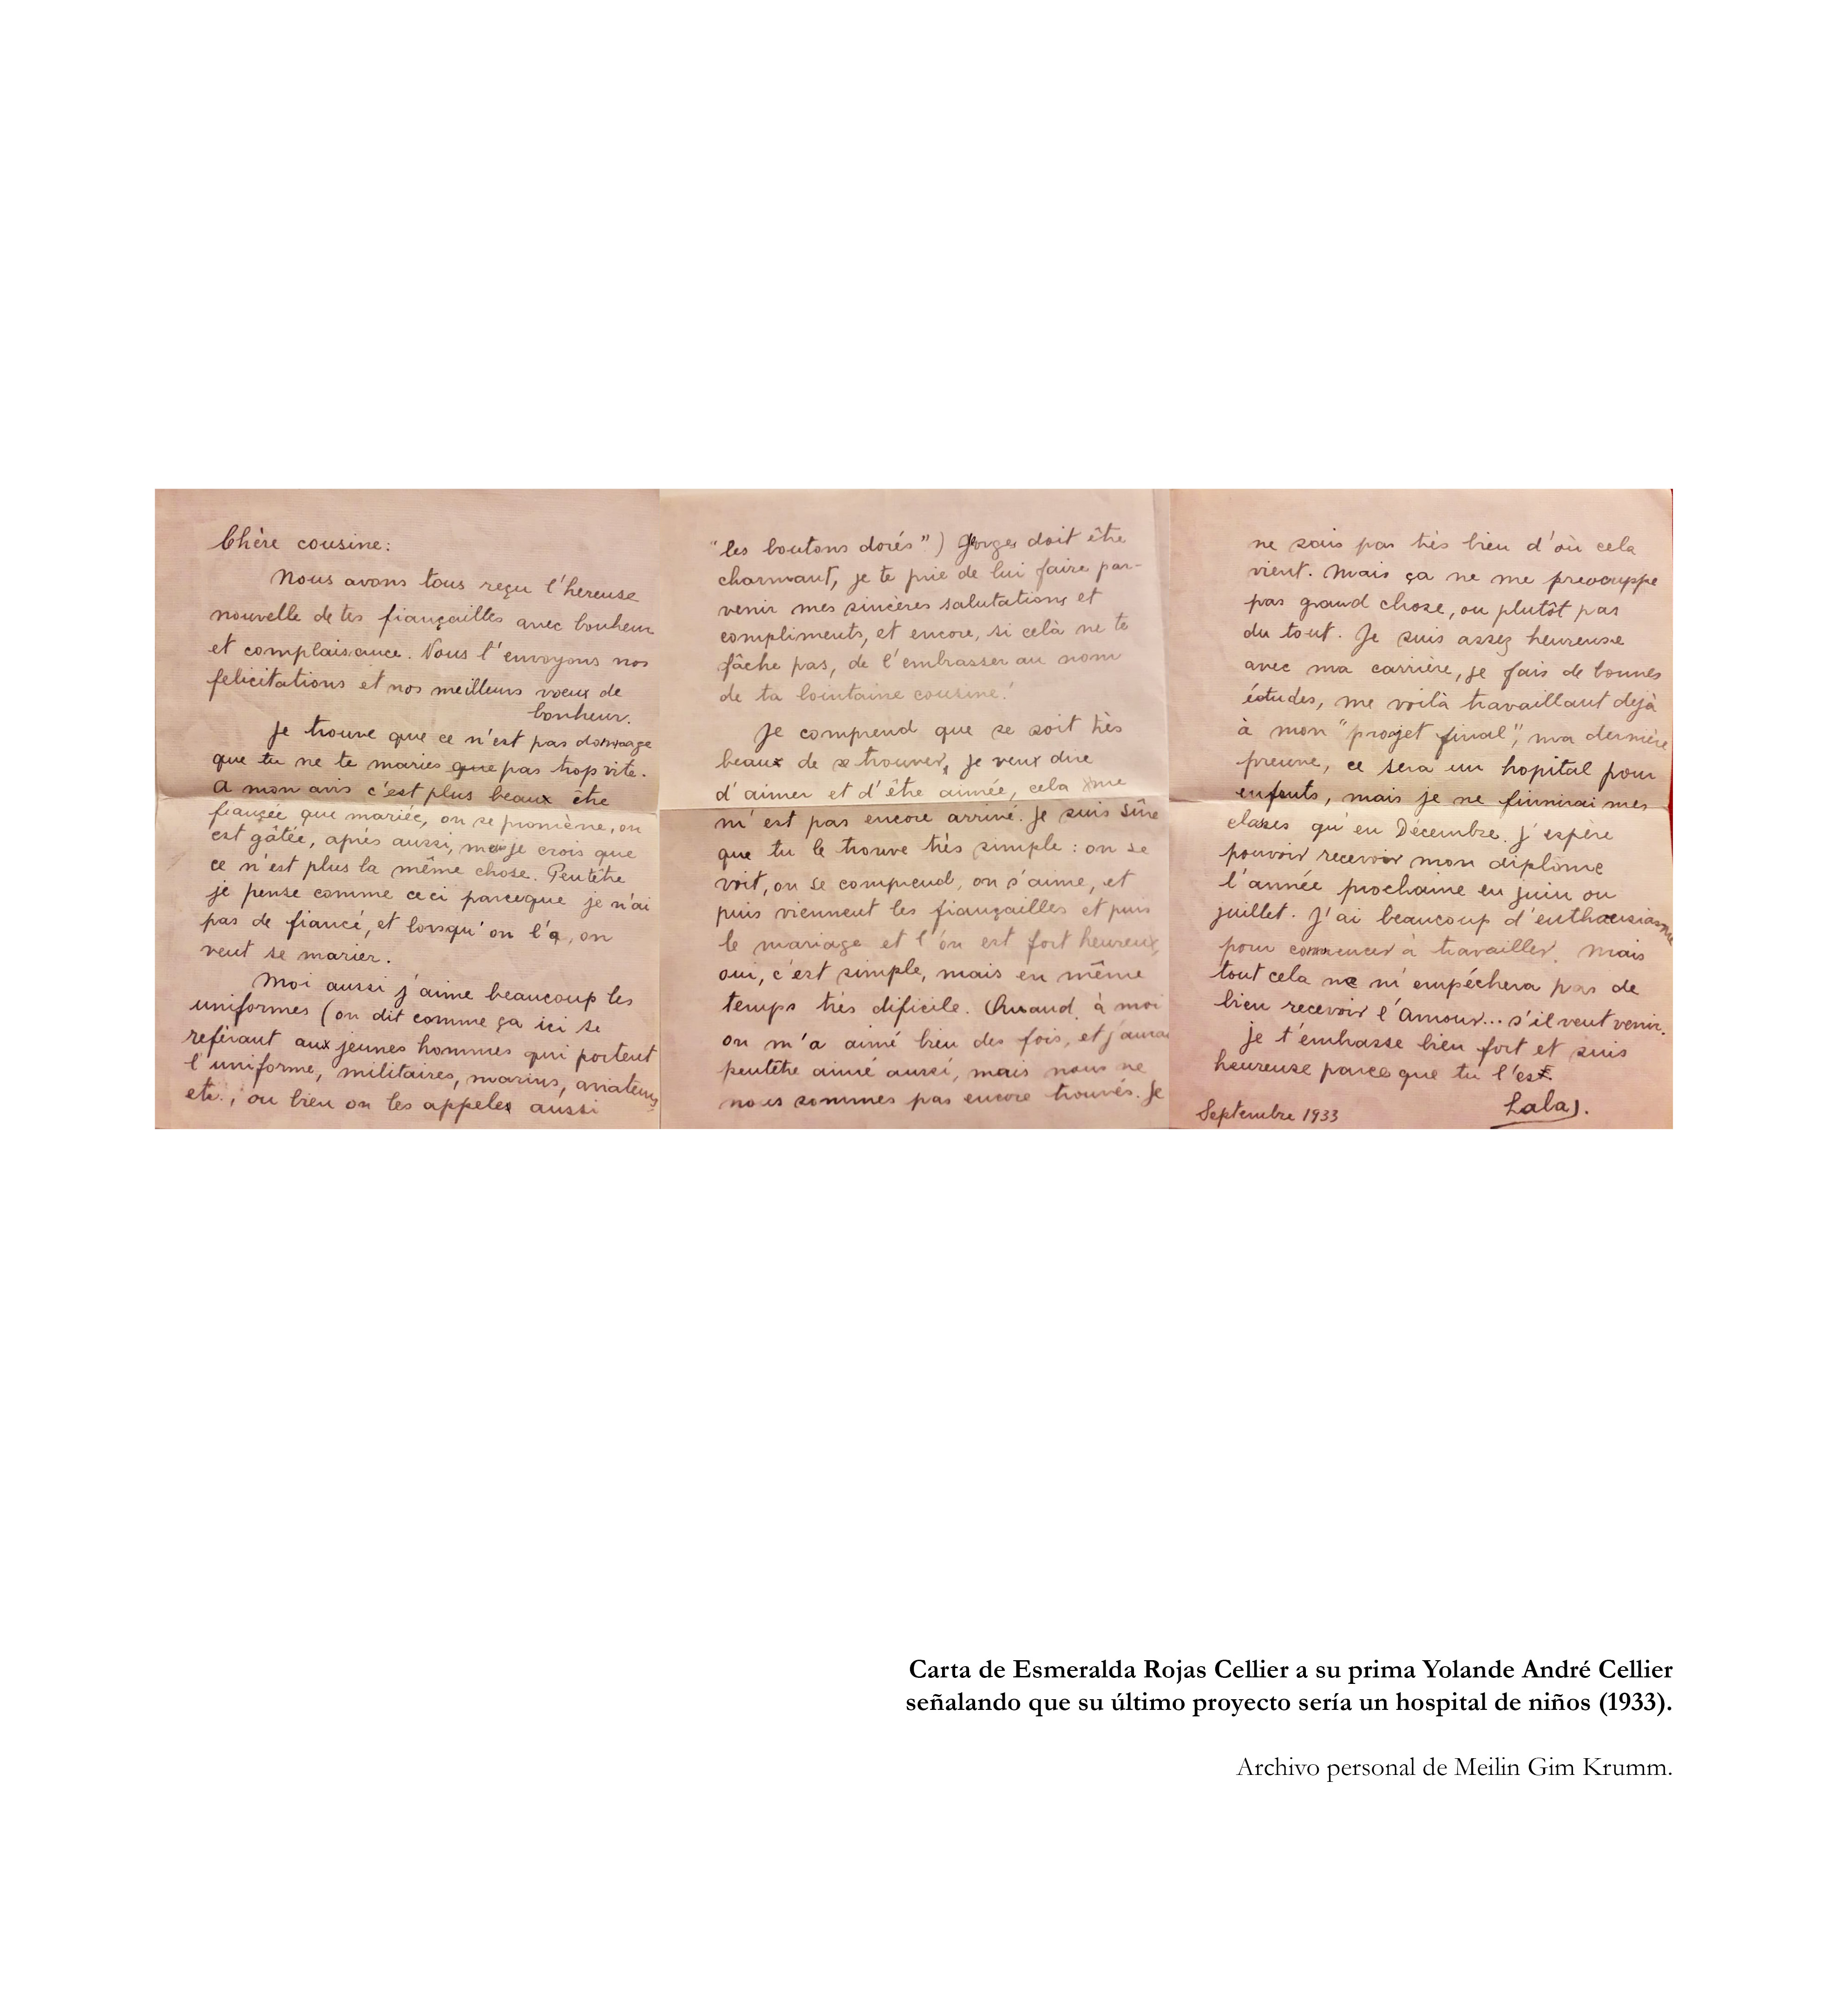 Chère cousine:
Nous avons tous reçu l'hereuse
nouvelle de tes fiançailles avec bonheur
et complaisance. Nous t'envoyons nos
felicitations et nos meilleurs voeux de
bonheur.
Je trouve que ce n'est pas dommage
que tu ne te maries que pas trop vite.
A mon avis c'est plus beaux être
fiancée que mariée, on se promène, on
est gâtée, après aussi, mais je crois que
ce n'est plus la même chose. Peutêtre
je pense comme ceci parceque je n'ai
pas de fiancé, et lorsqu'on l'a, on
veut se marier.
Moi aussi j'aime beaucoup les
uniformes (on dit comme ça ici se
referant aux jeunes hommes qui portent
l'uniforme, militaires, marins, aviateurs
etc., ou bien on les appeles aussi
"les boutons dorés") Georges doit être
charmant, je te prie de lui faire par-
venir mes sincères salutations et
compliments, et encore, si celà ne te
fâche pas, de l'embrasser au nom
de ta lointaine cousine!
Je comprend que se soit très
beaux de se trouver, je veux dire
d'aimer et d'être aimée, cela me
m'est pas encore arrivé. Je suis sûre
que tu le trouve très simple: on se
voit, on se comprend, on s'aime, et
puis viennent les fiançailles et puis
le mariage et l'on est fort heureux,
oui, c'est simple, mais en même
temps très dificile. Quand à moi
on m'a aimé bien des fois, et j'aurai
peutêtre aimé aussi, mais nous ne
nous sommes pas encore trouvés. Je
ne sais pas très bien d'où cela
vient. Mais ça ne me preocuppe
pas grand chose, ou plutôt pas
du tout. Je suis assez heureuse
avec ma carrière, je fais de bonnes
études, me voilà travaillant dejà
à mon "projet final", ma dernière
preuve, ce sera un hopital pour
enfants, mais je ne finnirai mes
clases qu'en Décembre. J'espère
pouvoir recevoir mon diplôme
l'année prochaine en juin ou
juillet. J'ai beaucoup d'enthousiasme
pour commencer à travailler. Mais
tout cela ne m'empéchera pas de
bien recevoir l'Amour... s'il veut venir.
Je t'embrasse bien fort et suis
heureuse parce que tu l'es.
Lala.
Septembre 1933
Carta de Esmeralda Rojas Cellier a su prima Yolande André Cellier
señalando que su último proyecto sería un hospital de niños (1933).
Archivo personal de Meilin Gim Krumm.